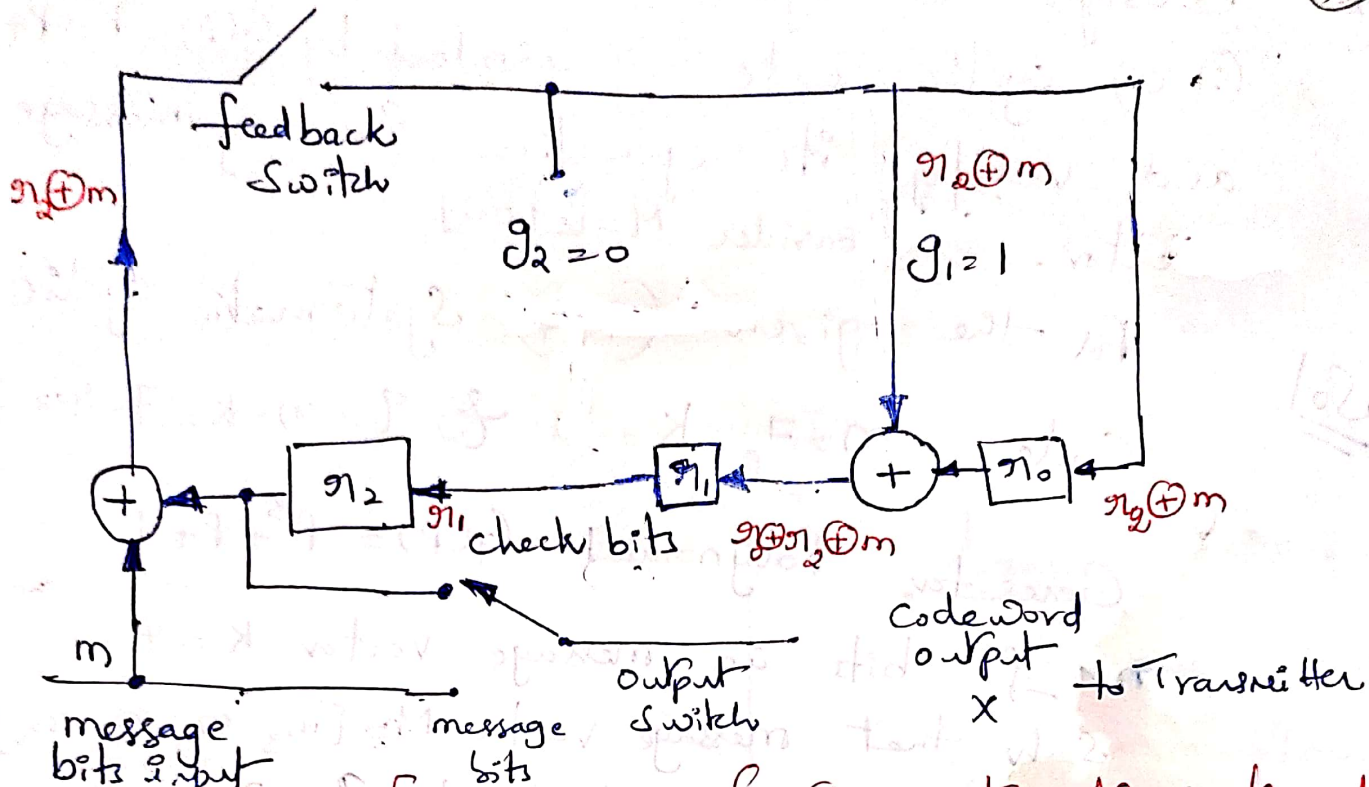 feedback
Switch
r₂⊕m
g₂ = 0
r₂⊕m
g₁ = 1
+
r₂
r₁
r₁
+
r₀
check bits
r₀⊕r₂⊕m
r₂⊕m
m
message
bits input
message
bits
output
Switch
codeword
output
X
to Transmitter